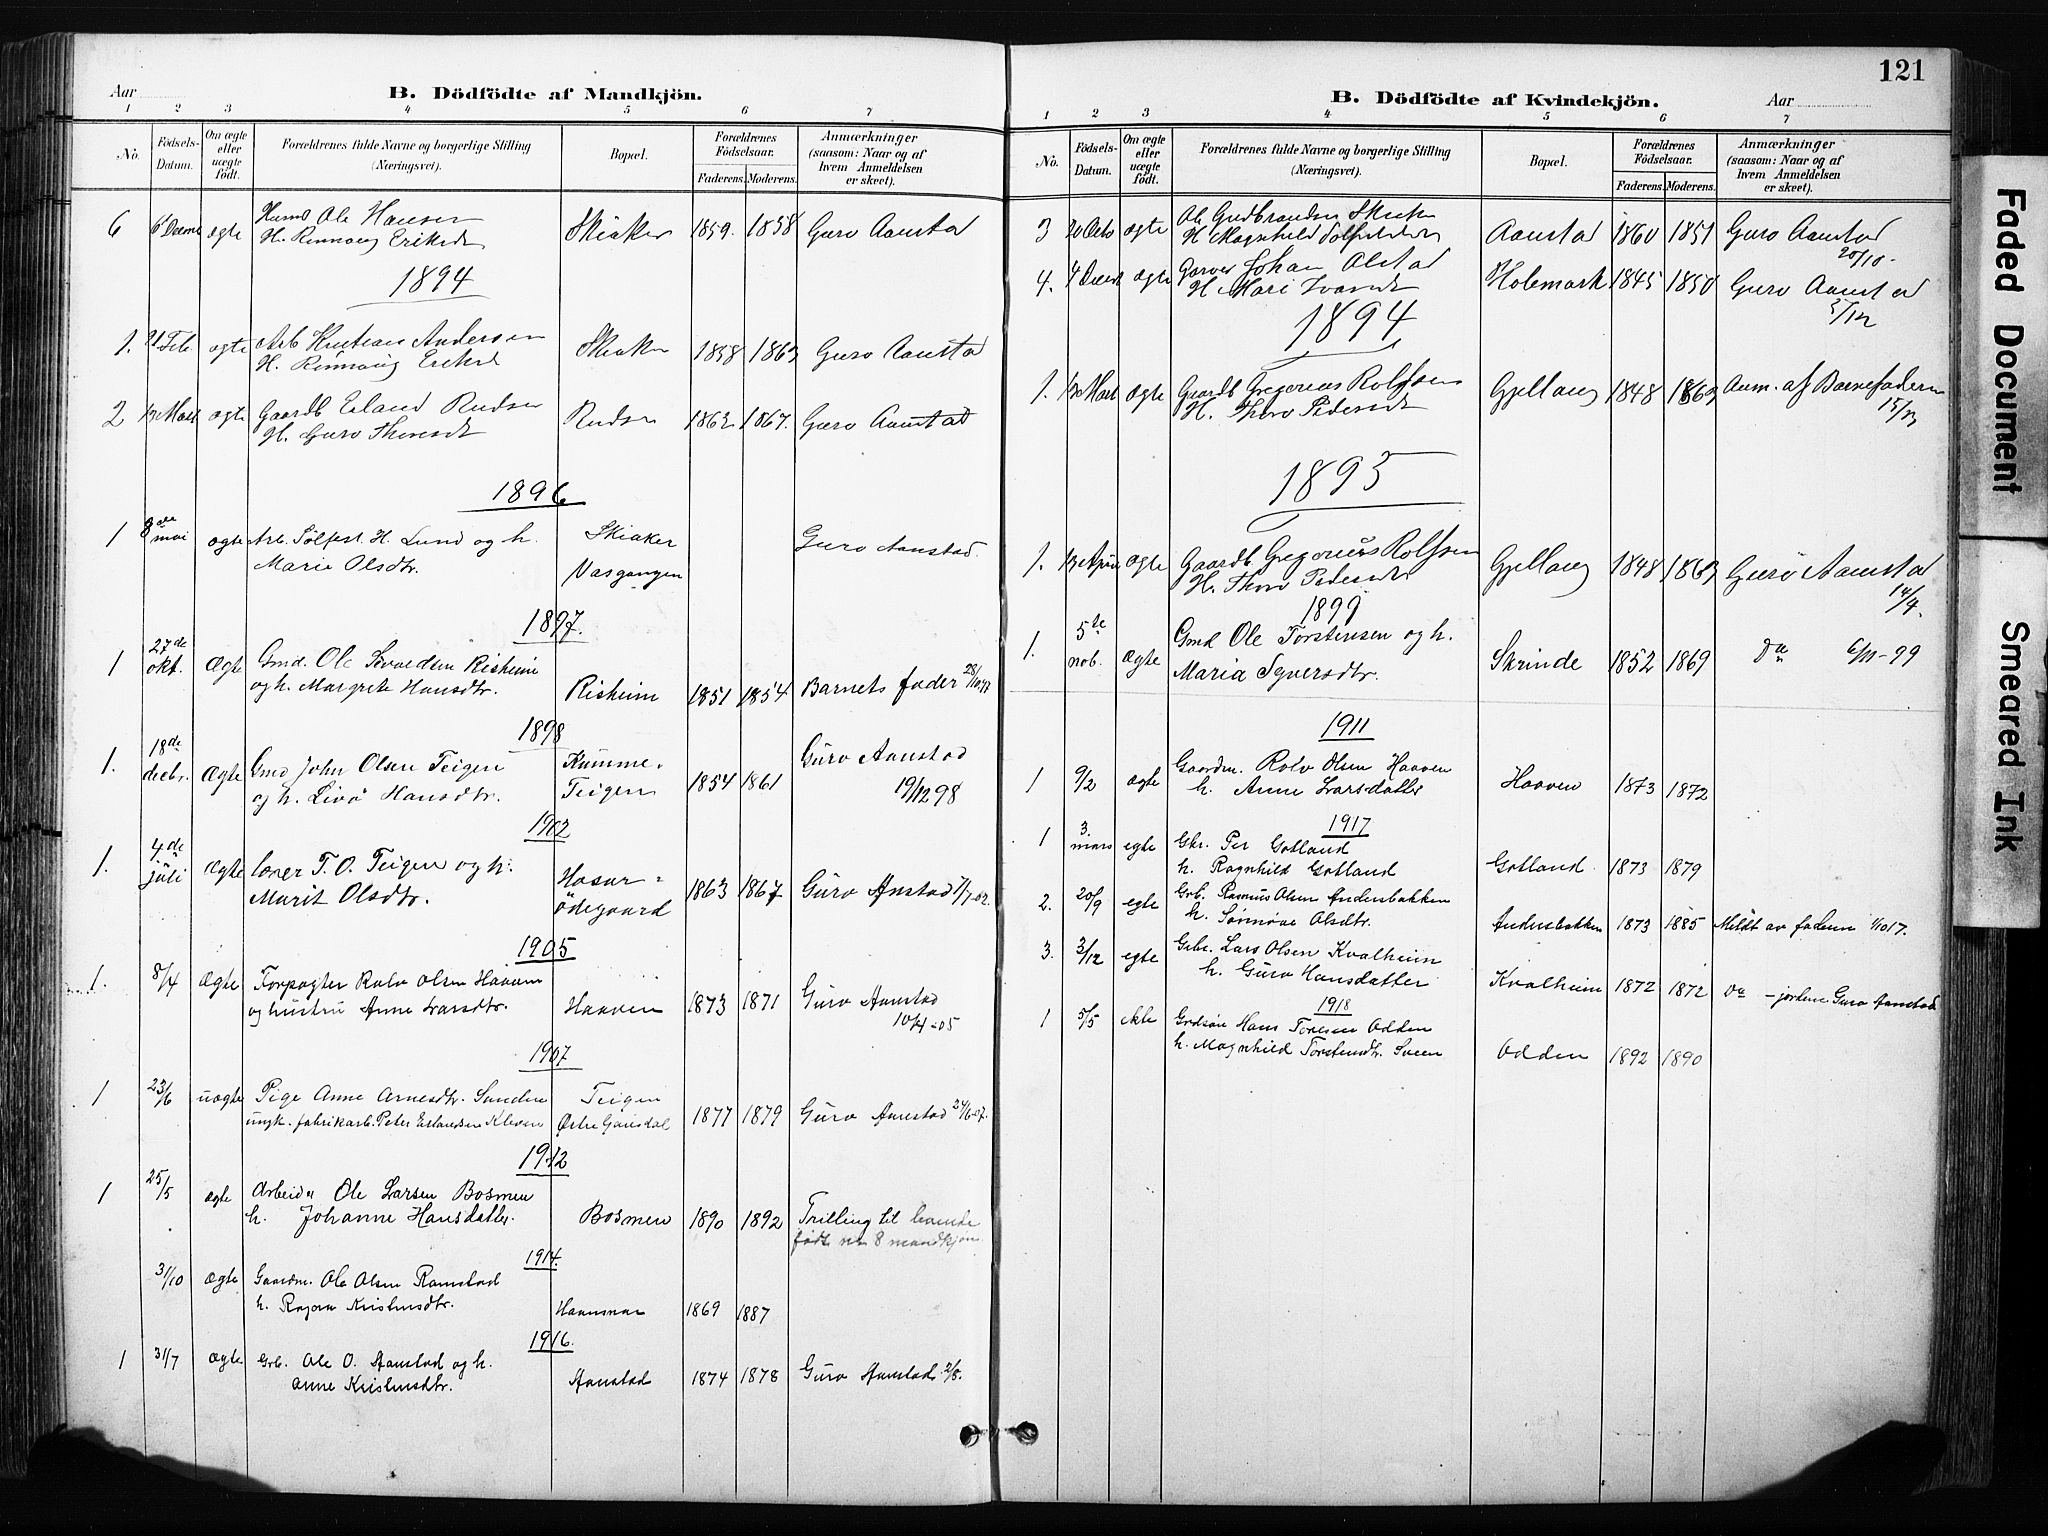 Aar
B. Dödfödte af Mandkjön.
1 2 3 4 5 6 7
No.
Födsels-Datum.
Om ægte eller uægte födt.
Forældrenes fulde Navne og borgerlige Stilling (Næringsvei).
Bopæl.
Forældrenes Födselsaar.
Faderens. Moderens.
Anmærkninger (saasom: Naar og af hvem Anmeldelsen er skeet).
6 ægte Ole Hansen Skiaker 1859. 1858 Guro Aanstad
H. Rønnaug Eriksdt
1894
1. 21 Feb. ægte Arb Kristian Andersen Skiaker 1858 1863 Guro Aanstad
H. Rønnaug Eriksd
2 13 Mars ægte Gaardb Erland Rudsen Rudsen 1862 1867. Guro Aanstad
H. Guro Thoresdt
1896
1 8de mai ægte Arb. Sølfest H. Lund og h. Skiaker Guro Aanstad.
Marie Olsdtr. Vasgangen
1897.
1 27de okt. Ægte Gmd. Ole Sivaldsen Risheim
og h. Margrete Hansdtr. Risheim 1851 1854 Barnets fader 28/10 97
1898
1. 18de decbr. Ægte Gmd John Olsen Teigen Kumme- Guro Aanstad
og h. Livø Hansdtr. Teigen 1854 1861 19/12 98
1902
1. 4de juli Ægte T. O. Teigen og h. Hosar-
Marit Olsdtr. ødegaard 1863 1867 Guro Anstad 7/7-02.
1905
1. 8/4 Ægte Forpagter Rolv Olsen Haaven
og hustru Anne Larsdtr. Haaven 1873 1871 Guro Aanstad
10/4-05
1907
1 23/6 uægte Pige Anne Arnesdtr. Sunden Teigen
ungk. fabrikarb. Peter Erlandsen Kleven Østre Gausdal 1877 1879 Guro Aanstad 24/6-07.
1912
1 25/5 ægte Arbeid. Ole Larsen Bosmen
h. Johanne Hansdatter. Bosmen 1890 1892 Trilling til levende
født no 8 mandkjøn
1914.
31/10 Ægte Gaardm. Ole Olsen Ramstad
h. Kristensdtr. 1869 1887
1916.
1 31/7 Ægte Grb. Ole O. Aanstad og h.
Anne Kristensdtr. Aanstad 1874 1878 Guro Aanstad 2/8.
121
B. Dödfödte af Kvindekjön.
Aar
1 2 3 4 5 6 7
No.
Födsels-Datum.
Om ægte eller uægte födt.
Forældrenes fulde Navne og borgerlige Stilling (Næringsvei).
Bopæl.
Forældrenes Födselsaar.
Faderens. Moderens.
Anmærkninger (saasom: Naar og af hvem Anmeldelsen er skeet).
3 20 Octo ægte Ole Gudbrandsen Aanstad 1860 1851 Guro Aanstad
H Magnhild 20/10.
4. 4 Decbr ægte Garver Johan Alstad Holemark 1845 1850 Guro Aanstad
H Mari Ivarsdt 5/12
1894
1. 13 Mart ægte Gaardb Gregorius Rolfsen Gjellaug 1848 1863 Anm. af Barnefaderen
H. Thora Pedersdt 15/3
1895
1. 13 April ægte Gaardb Gregorius Rolfsen Gjellaug 1848 1863 Guro Aanstad
H. Thora Pedersdt 14/4.
1899
1. 5te nob. Ægte Gmd Ole Torstensen og h. Skrinde 1852 1869 Do 6/11-99
Maria Syversdtr.
1911
1 9/2 ægte Gaardm. Rolv Olsen Haaven Haaven 1873 1872
h. Anne Larsdatter
1917
1 3. mars egte Gbr. Per Gotland
h. Ragnhild Gotland Gotland 1873 1879
2. 20/9 egte Grb. Rasmus Olsen Andersbakken
h. Sønnøve Olsdtr. Andersbakken 1873 1885 Meldt av faderen 1/10 17.
3. 3/12 egte Gbr. Lars Olsen Kvalheim
h. Guro Hansdatter Kvalheim 1872 1872 Do - jordem Guro Aanstad
1918
1 5/5 ekte Grdsøn Hans Toresen Odden
h. Magnhild Torstensdtr. Sveen Odden 1892 1890
Faded Document
Smeared Ink